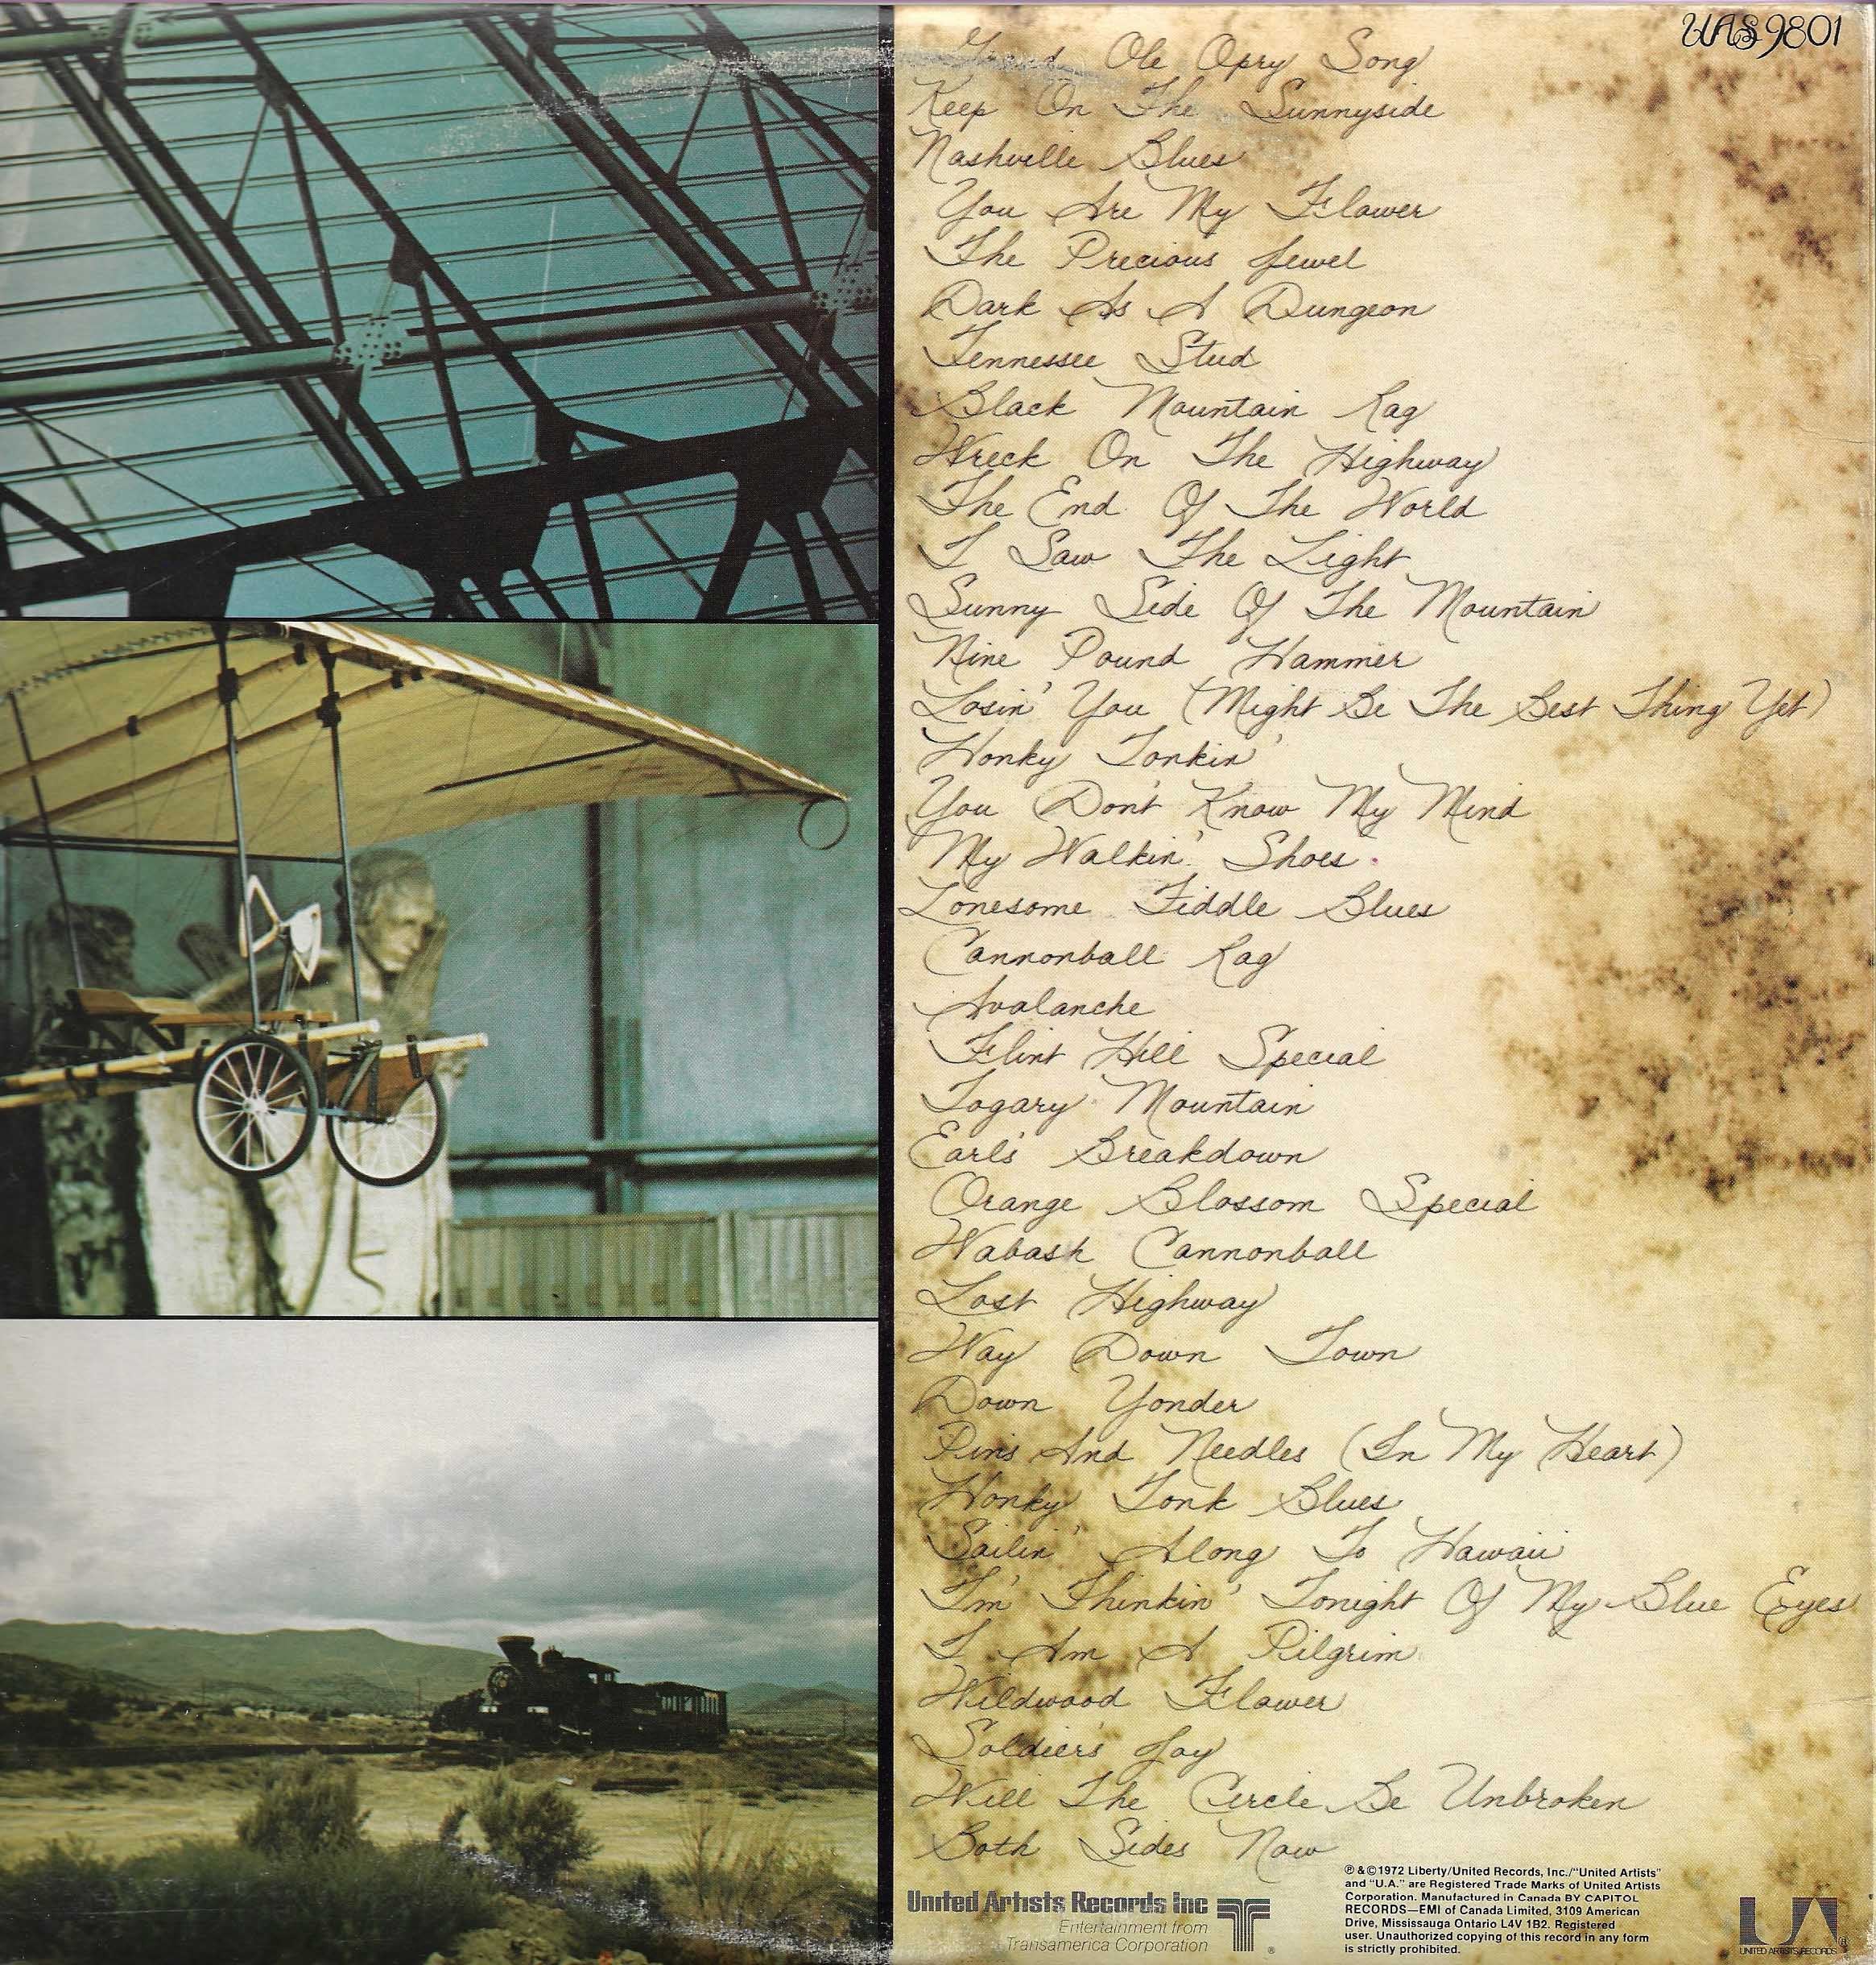 UAS9801
Grand Ole Opry Song
Keep On The Sunnyside
Nashville Blues
You Are My Flower
The Precious Jewel
Dark As A Dungeon
Tennessee Stud
Black Mountain Rag
Wreck On The Highway
The End Of The World
I Saw The Light
Sunny Side Of The Mountain
Nine Pound Hammer
Losin' You (Might Be The Best Thing Yet)
Honky Tonkin'
You Don't Know My Mind
My Walkin' Shoes
Lonesome Fiddle Blues
Cannonball Rag
Avalanche
Flint Hill Special
Togary Mountain
Earl's Breakdown
Orange Blossom Special
Wabash Cannonball
Lost Highway
Way Down Town
Down Yonder
Pins And Needles (In My Heart)
Honky Tonk Blues
Sailin' Along To Hawaii
I'm Thinkin' Tonight Of My Blue Eyes
I Am A Pilgrim
Wildwood Flower
Soldier's Joy
Will The Circle Be Unbroken
Both Sides Now
℗ &©1972 Liberty/United Records, Inc./"United Artists"
and "U.A." are Registered Trade Marks of United Artists
Corporation. Manufactured in Canada BY CAPITOL
RECORDS—EMI of Canada Limited, 3109 American
Drive, Mississauga Ontario L4V 1B2. Registered
user. Unauthorized copying of this record in any form
is strictly prohibited.
United Artists Records Inc
Entertainment from
Transamerica Corporation
®
UA®
UNITED ARTISTS RECORDS